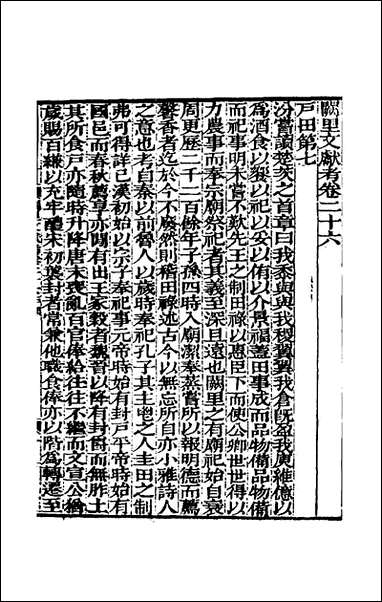 闕里文獻考卷二十六
戶田第七
汾嘗讀楚茨之首章曰我黍與與我稷翼翼我倉旣盈我庾維億以
為酒食以饗以祀以妥以侑以介景福蓋田事成而品物備品物備
而祀事明未嘗不歎先王之制田祿以惠臣下而使公卿世世得以
力農事而奉宗廟祭祀者其義至深且遠也闕里之有廟祀始自衰
周更歷二千二百餘年子孫四時入廟潔奉蒸嘗所以報明德而薦
馨香者迄於今不廢然則稽田祿述古今以無忘所自亦小雅詩人
之意也考自秦以前魯人以歲時奉祀孔子其主鬯之人圭田之制
弗可得詳已漢初始以宗子奉祀事元帝時始有封戶平帝時始有
國邑而春秋饗享亦閒有出王家穀者魏晉以降有封爵而無胙土
其所食戶亦隨時升降唐末喪亂百官俸給往往不繼而文宣公猶
歲賜百縑以充牢醴宋初襲封者常兼他職食俸亦以階為轉遷至